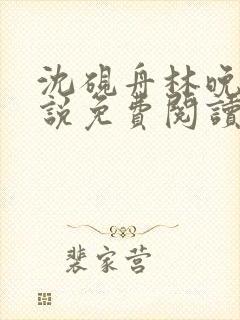 沈硯舟林晚
說免費閱讀
裴家营